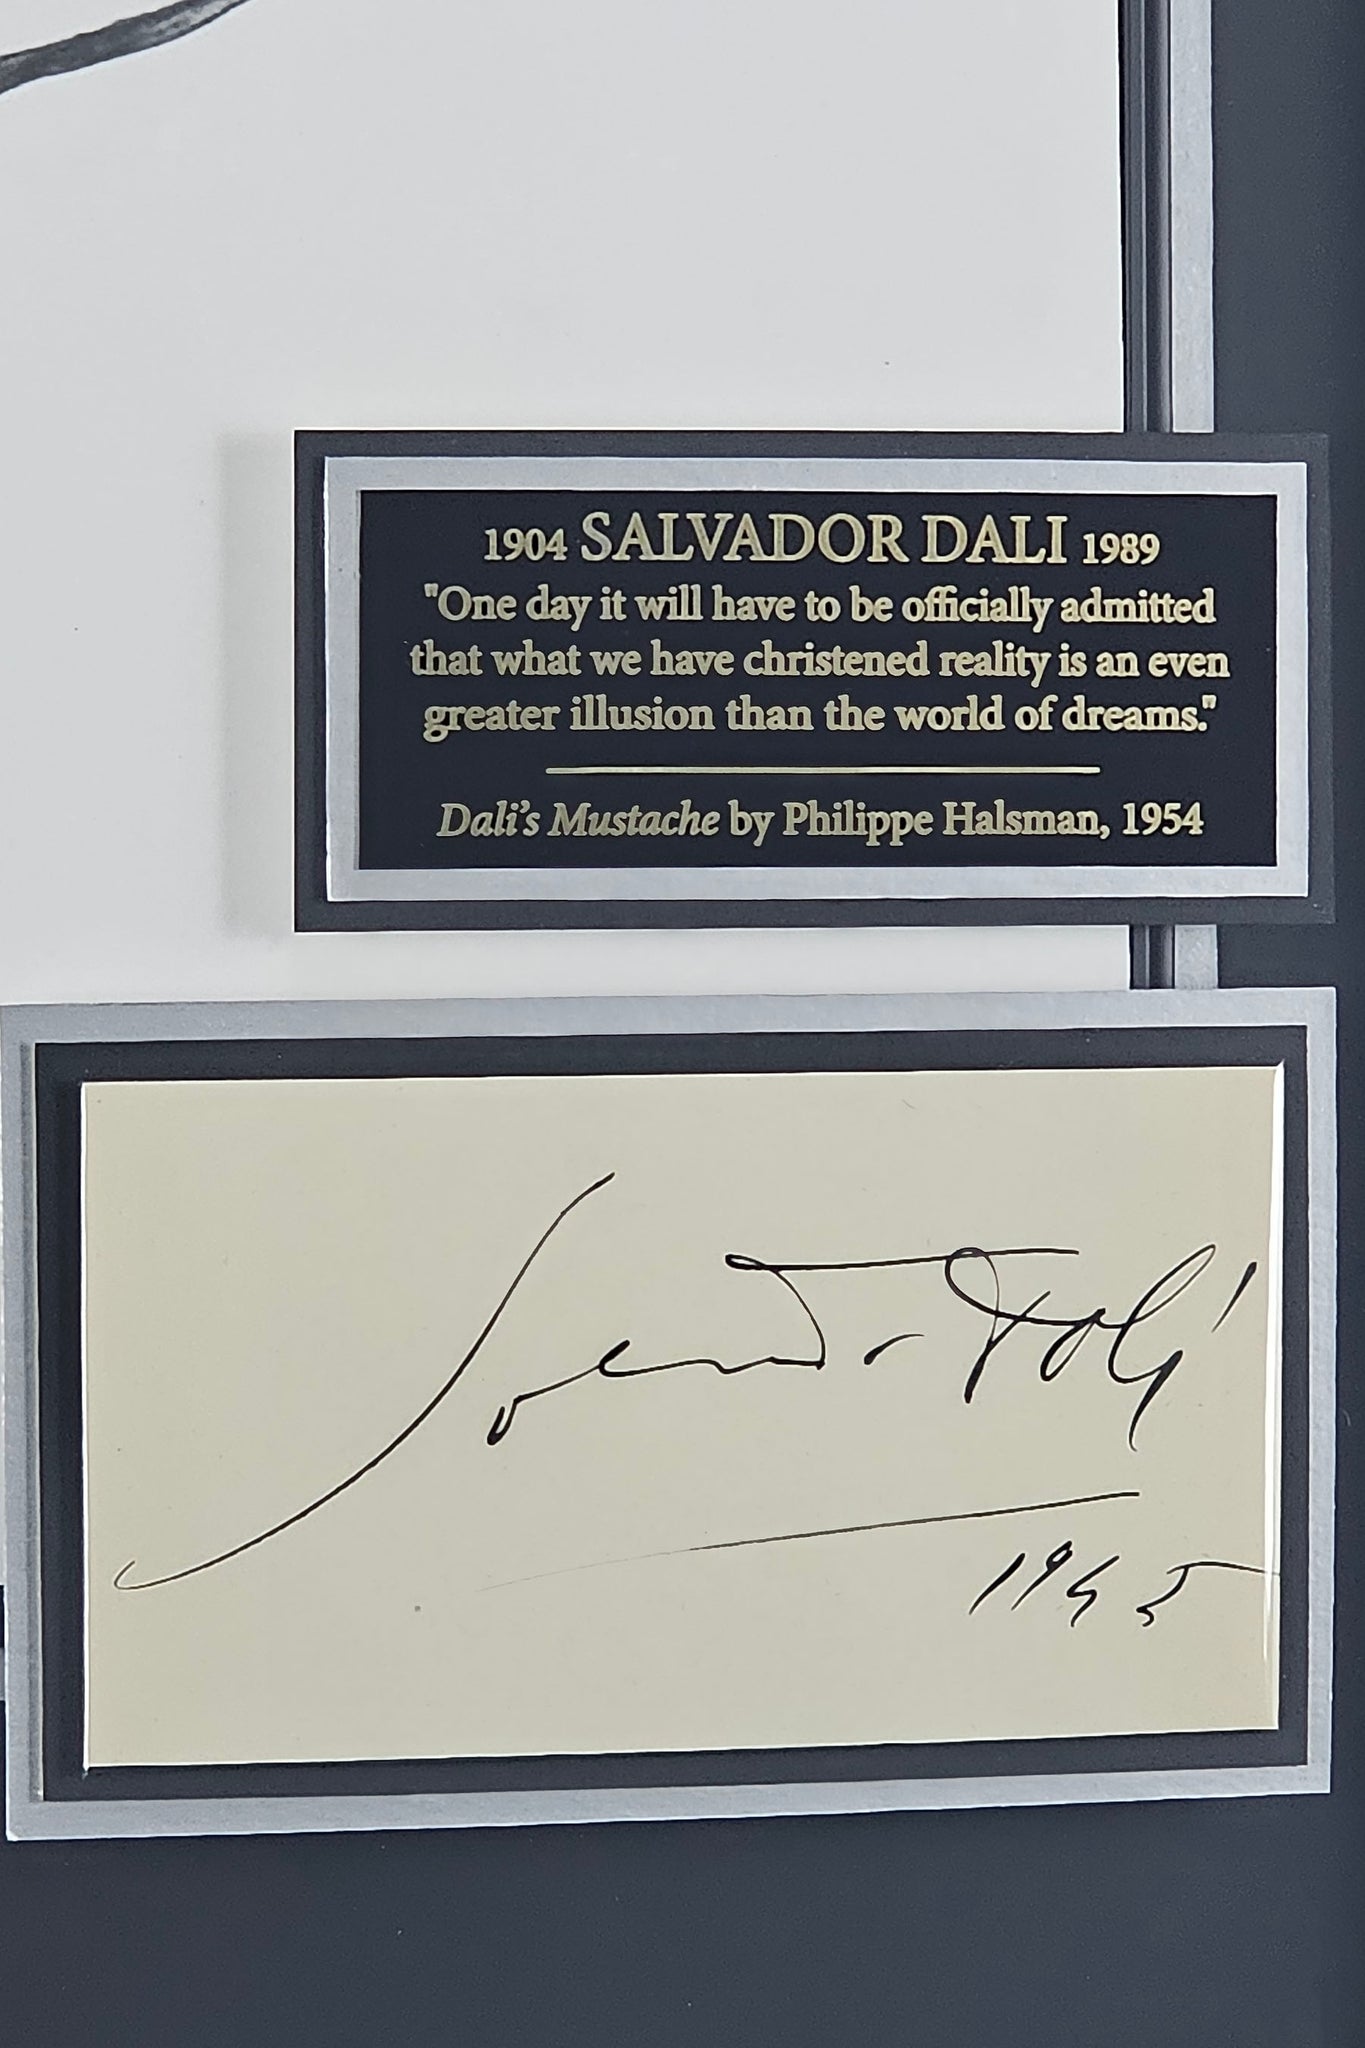 1904 SALVADOR DALI 1989
"One day it will have to be officially admitted
that what we have christened reality is an even
greater illusion than the world of dreams."
Dali's Mustache by Philippe Halsman, 1954
Dalí